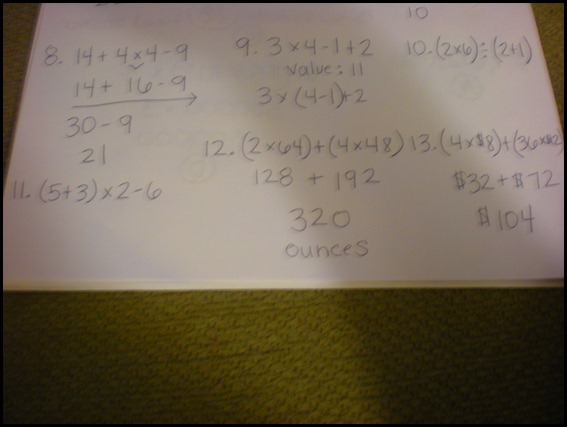 10
8. 14 + 4 x 4 - 9
14 + 16 - 9
30 - 9
21
9. 3 x 4 - 1 + 2
value: 11
3 x (4-1)+2
10. (2x6) ÷ (2+1)
11. (5+3) x 2 - 6
12. (2x64)+(4x48)
128 + 192
320
ounces
13. (4x$8)+(36x$2)
$32 + $72
$104